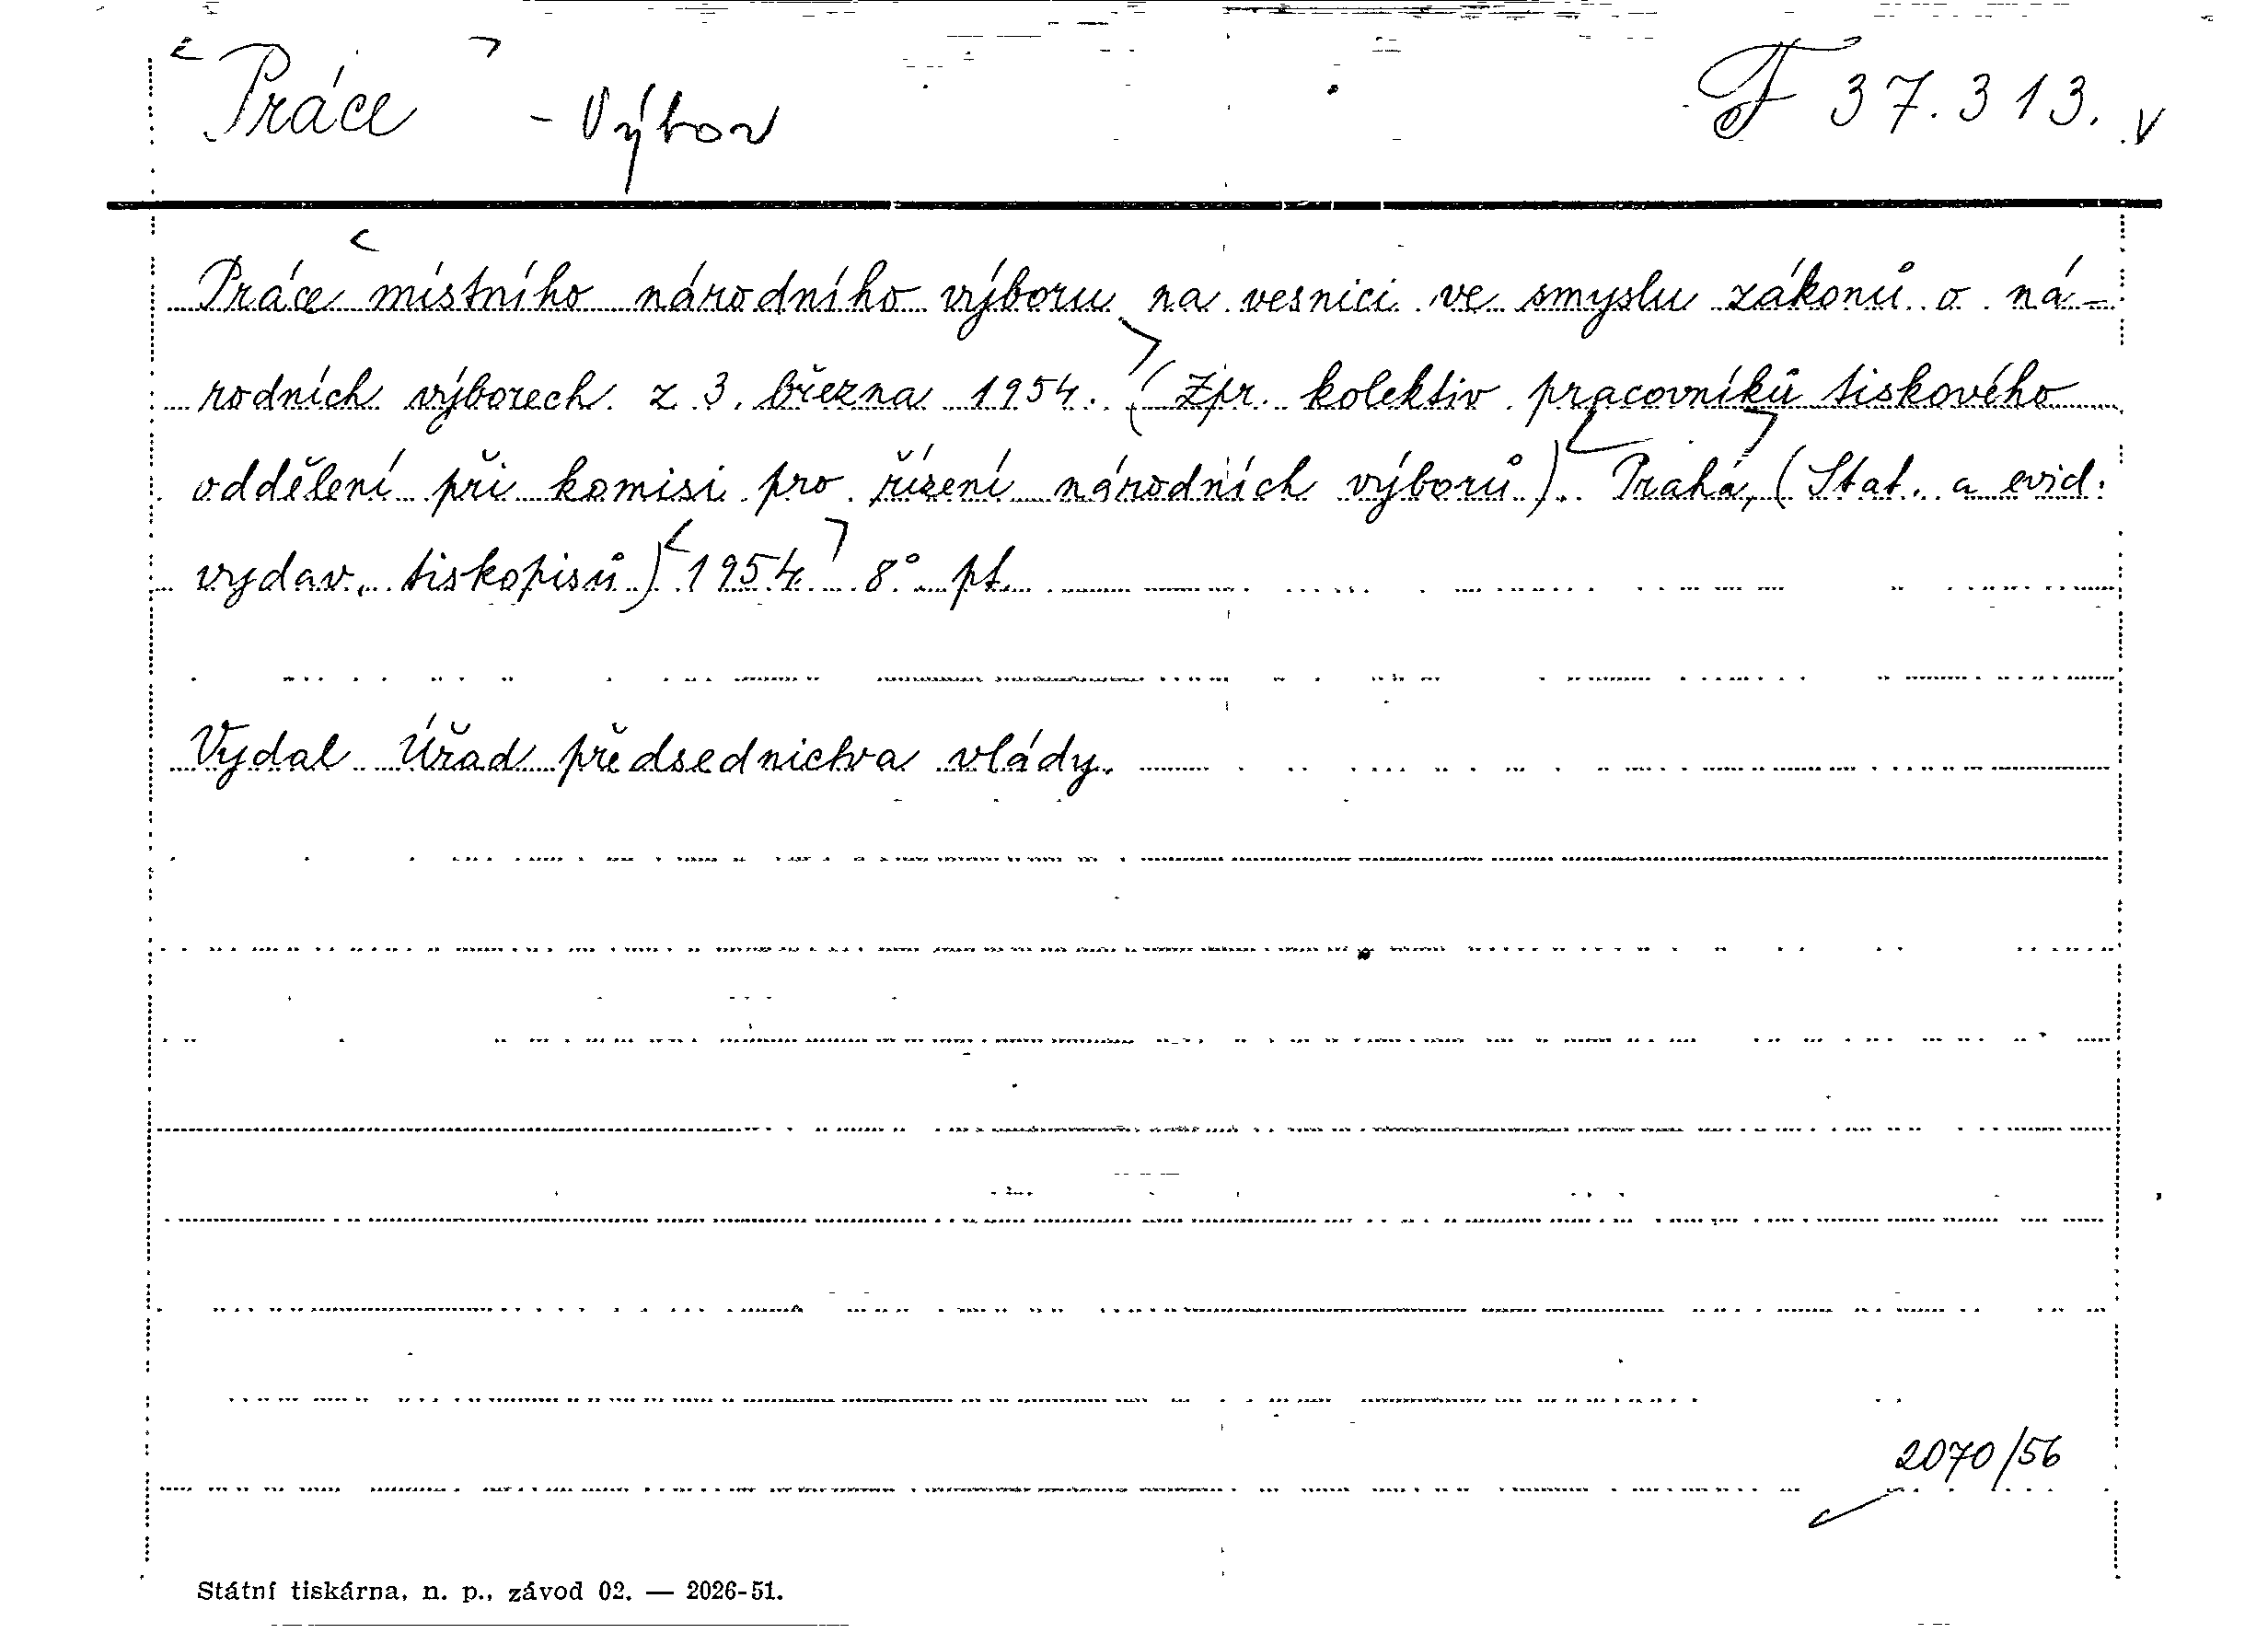 Práce - Výbor F 37.313. v
Práce místního národního výboru na vesnici ve smyslu zákonů o ná-
rodních výborech z 3. března 1954. (Zpr. kolektiv pracovníků tiskového
oddělení při komisi pro řízení národních výborů). Praha, (Stat. a evid.
vydav. tiskopisů) 1954. 8° pt.
Vydal Úřad předsednictva vlády.
2070/56
Státní tiskárna, n. p., závod 02. — 2026-51.